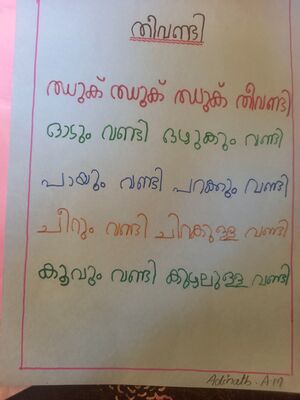 തീവണ്ടി
ഝുക് ഝുക് ഝുക് തീവണ്ടി
ഓടും വണ്ടി ഒഴുകും വണ്ടി
പായും വണ്ടി പറക്കും വണ്ടി
ചീറും വണ്ടി ചിറകുള്ള വണ്ടി
കൂവും വണ്ടി കുഴലുള്ള വണ്ടി